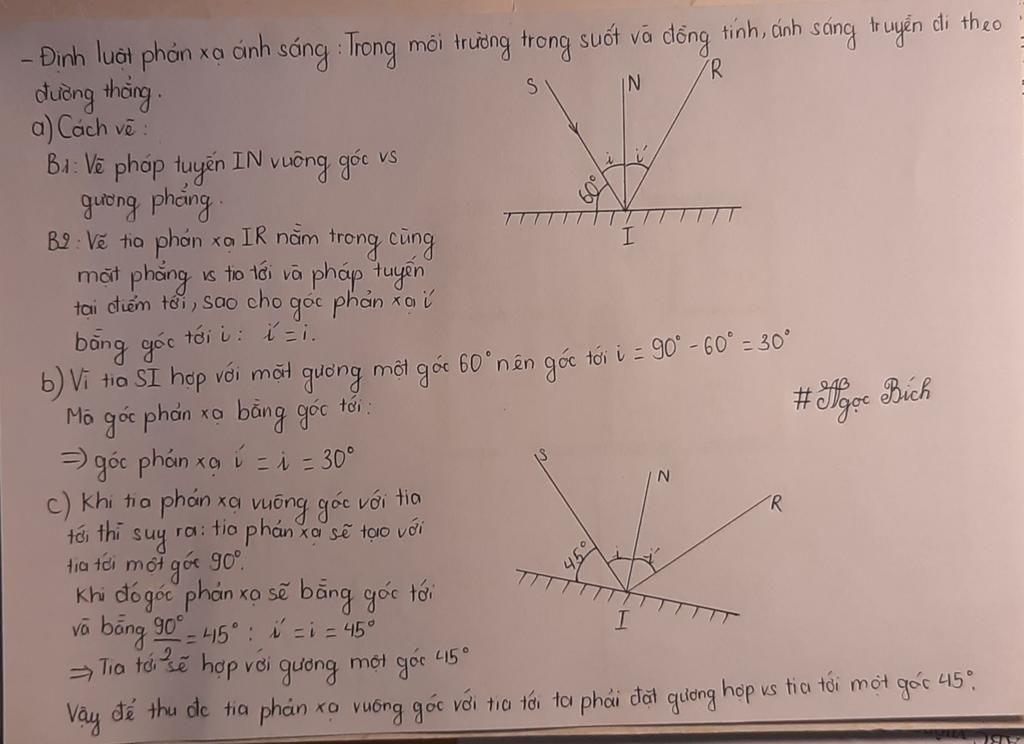 - Định luật phản xạ ánh sáng: Trong môi trường trong suốt và đồng tính, ánh sáng truyền đi theo
đường thẳng.
a) Cách vẽ:
B1: Vẽ pháp tuyến IN vuông góc vs
gương phẳng.
B2: Vẽ tia phản xạ IR nằm trong cùng
mặt phẳng vs tia tới và pháp tuyến
tại điểm tới, sao cho góc phản xạ i'
bằng góc tới i: i' = i.
S
N
R
i
i'
60°
I
b) Vì tia SI hợp với mặt gương một góc 60° nên góc tới i = 90° - 60° = 30°
Mà góc phản xạ bằng góc tới:
=> góc phản xạ i' = i = 30°
# Ngọc Bích
c) Khi tia phản xạ vuông góc với tia
tới thì suy ra: tia phản xạ sẽ tạo với
tia tới một góc 90°.
Khi đó góc phản xạ sẽ bằng góc tới
và bằng 90°/2 = 45°: i' = i = 45°
=> Tia tới sẽ hợp với gương một góc 45°
S
N
R
i
i'
45°
I
Vậy để thu đc tia phản xạ vuông góc với tia tới ta phải đặt gương hợp vs tia tới một góc 45°.